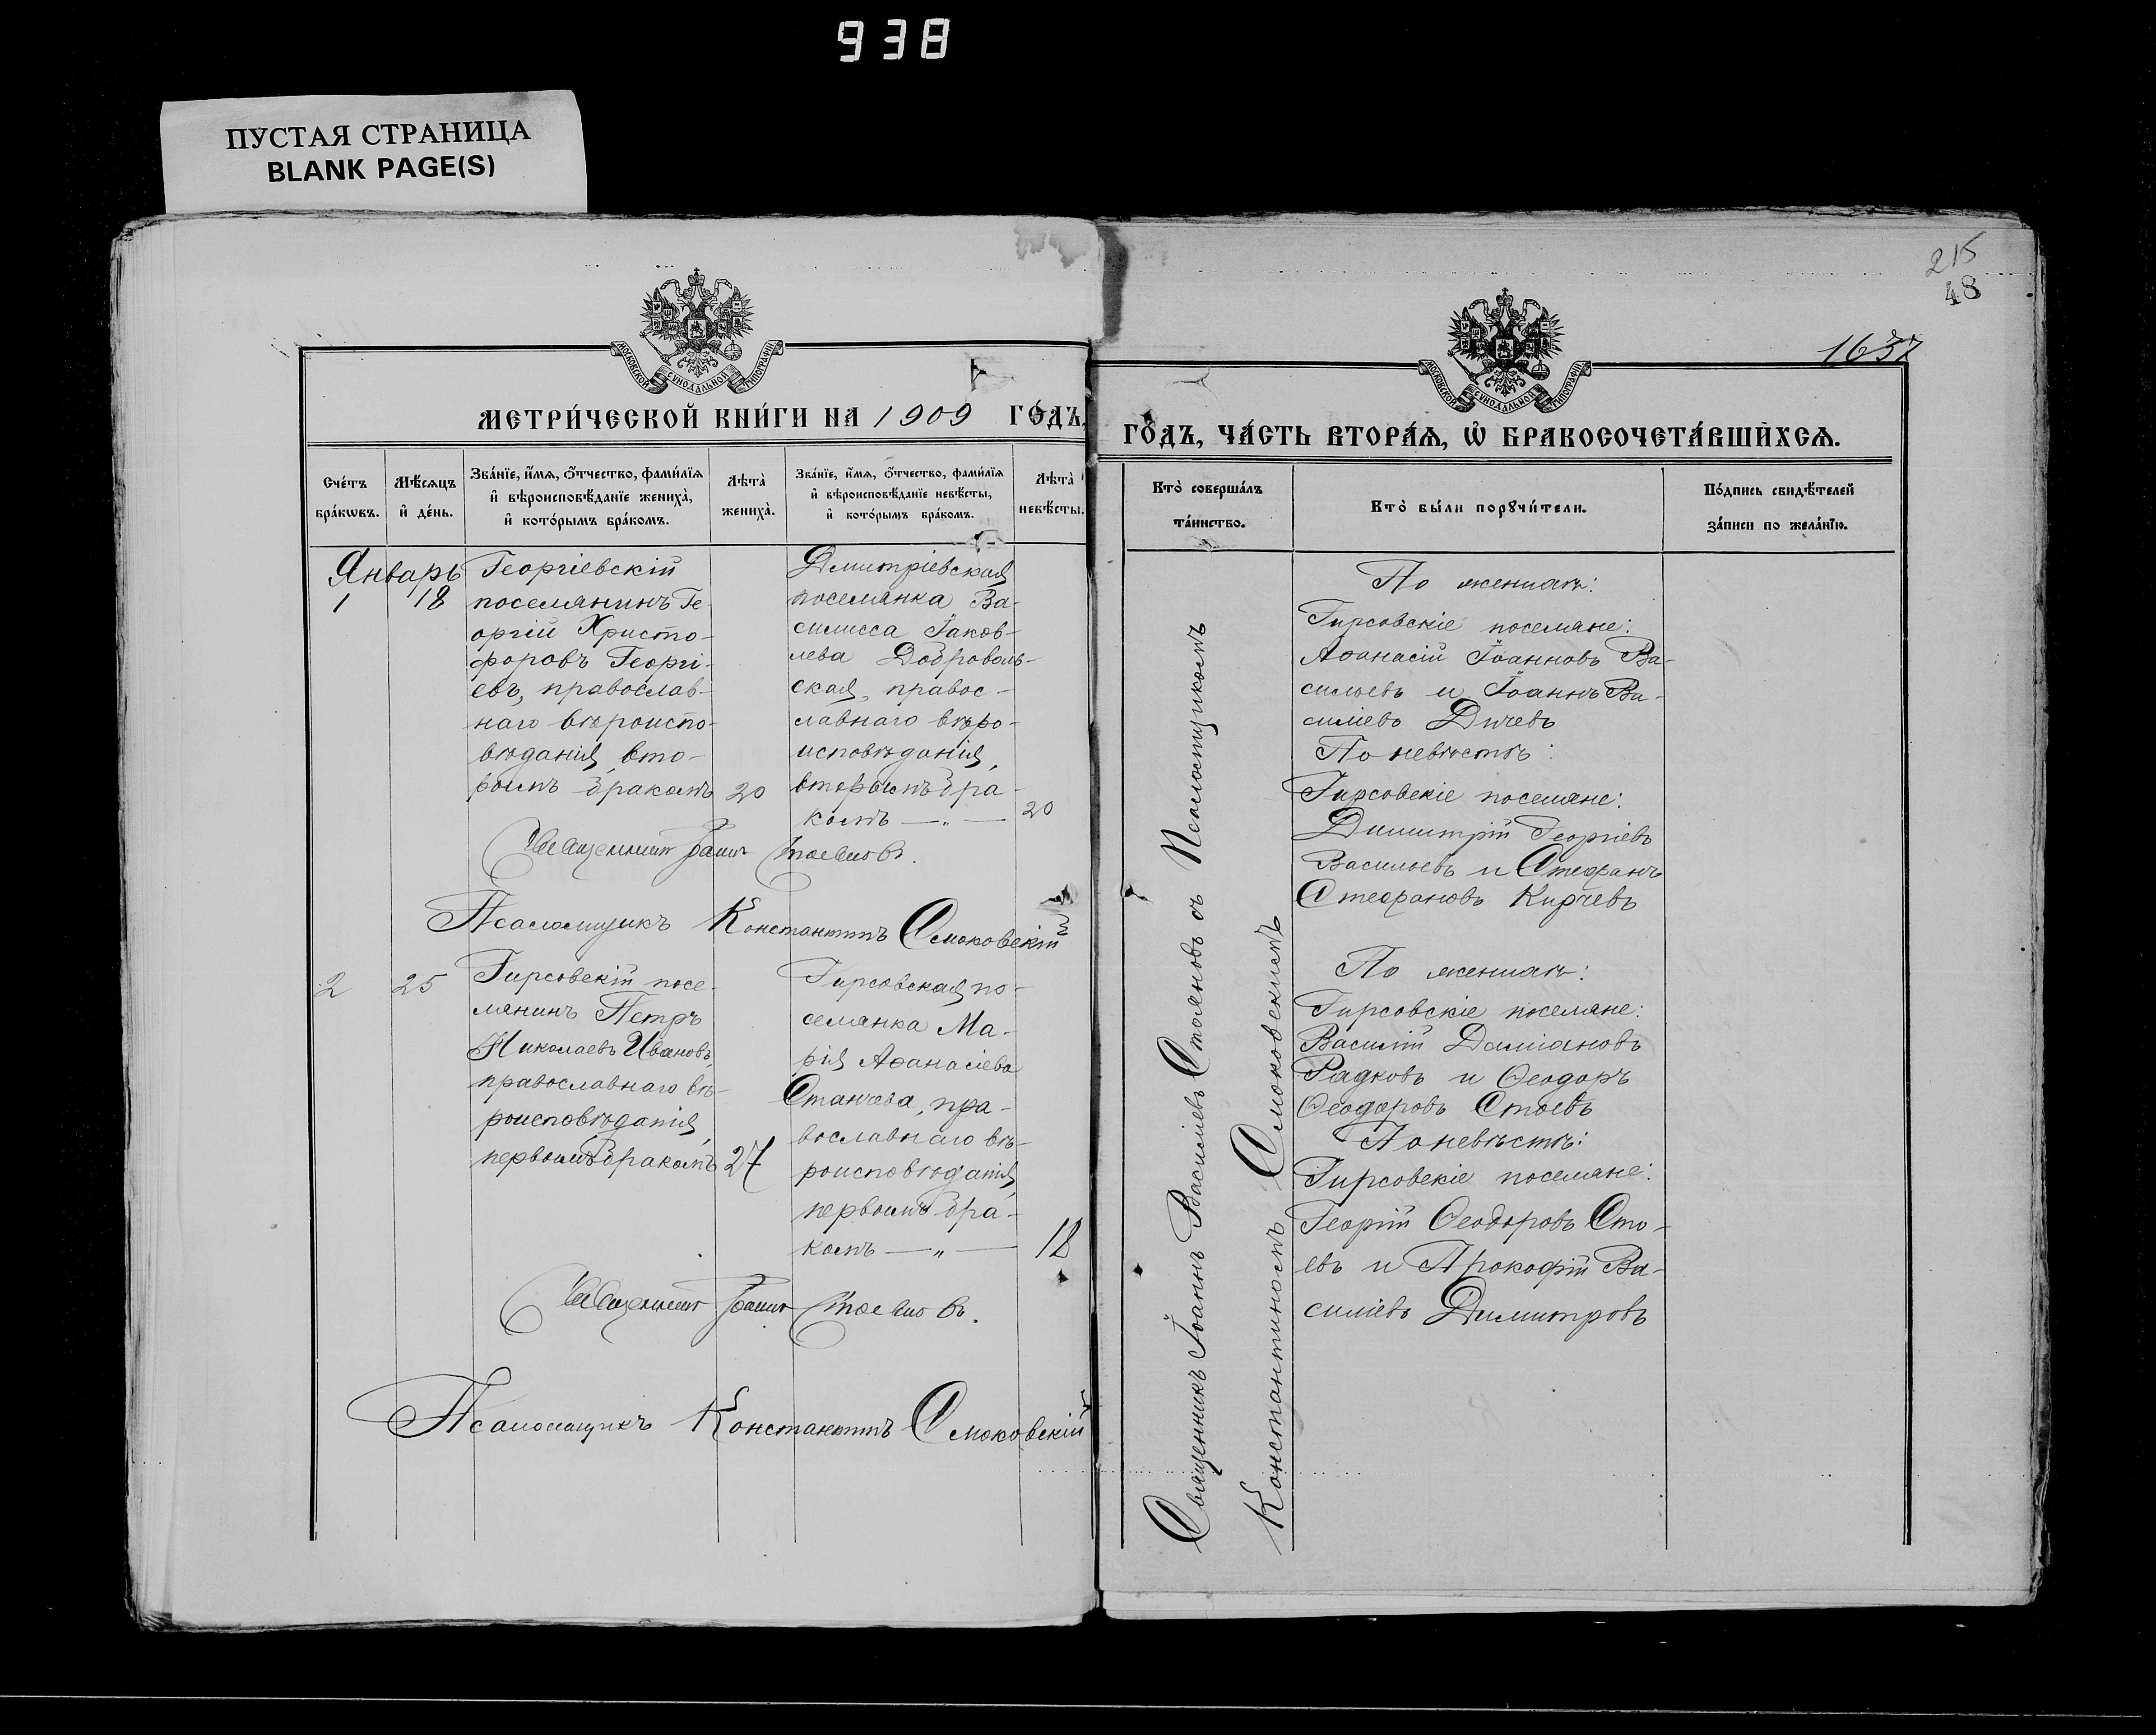 938
ПУСТАЯ СТРАНИЦА
BLANK PAGE(S)
МОСКОВСКОЙ СѴНОДАЛЬНОЙ ТИПОГРАФІИ
МЕТРИ́ЧЕСКОЙ КНИ́ГИ НА 1909 ГО́ДЪ,
Сче́тъ бра́кѡвъ.
Мѣ́сѧцъ и҆ де́нь.
Зва́нїе, и҆́мѧ, ѻ҆́тчество, фами́лїѧ
и҆ вѣроисповѣ́данїе жениха̀,
и҆ кото́рымъ бра́комъ.
Лѣ́та̀ жениха̀.
Зва́нїе, и҆́мѧ, ѻ҆́тчество, фами́лїѧ
и҆ вѣроисповѣ́данїе невѣ́сты,
и҆ кото́рымъ бра́комъ.
Лѣ́та̀ невѣ́сты.
Январь
1 18
Георгіевскій
поселянинъ Ге-
оргій Христо-
форовъ Георгі-
евъ, православ-
наго вѣроиспо-
вѣданія, вто-
рымъ бракомъ 20
Дмитріевская
поселянка Ва-
силисса Іаков-
лева Доброволь-
ская, правос-
лавнаго вѣро-
исповѣданія,
вторымъ бра-
комъ — „ — 20
Священникъ Іоаннъ Стояновъ.
Псаломщикъ Константинъ Смоковскій
2 25
Гирсовскій посе-
лянинъ Петръ
Николаевъ Ивановъ,
православнаго вѣ-
роисповѣданія,
первымъ бракомъ 27
Гирсовская по-
селянка Ма-
рія Аѳанасіева
Станчева, пра-
вославнаго вѣ-
роисповѣданія,
первымъ бра-
комъ — „ — 18
Священникъ Іоаннъ Стояновъ.
Псаломщикъ Константинъ Смоковскій
215
48
1637
МОСКОВСКОЙ СѴНОДАЛЬНОЙ ТИПОГРАФІИ
ГО́ДЪ, ЧА́СТЬ ВТОРА́Ѧ, Ѡ҆ БРАКОСОЧЕТА́ВШИХСѦ.
Кто̀ соверша́лъ
та́инство.
Кто̀ бы́ли порꙋчи́тели.
По́дпись свидѣ́телей
за́писи по жела́нїю.
Священникъ Іоаннъ Василіевъ Стояновъ съ Псаломщикомъ
Константиномъ Смоковскимъ
По женихѣ:
Гирсовскіе поселяне:
Аѳанасій Іоанновъ Ва-
сильевъ и Іоаннъ Ва-
силіевъ Дичевъ
По невѣстѣ:
Гирсовскіе поселяне:
Димитрій Георгіевъ
Васильевъ и Стефанъ
Стефановъ Кирчевъ
По женихѣ:
Гирсовскіе поселяне:
Василій Даміановъ
Радковъ и Ѳеодоръ
Ѳеодоровъ Стоевъ
По невѣстѣ:
Гирсовскіе поселяне:
Георгій Ѳеодоровъ Сто-
евъ и Прокофій Ва-
силіевъ Димитровъ